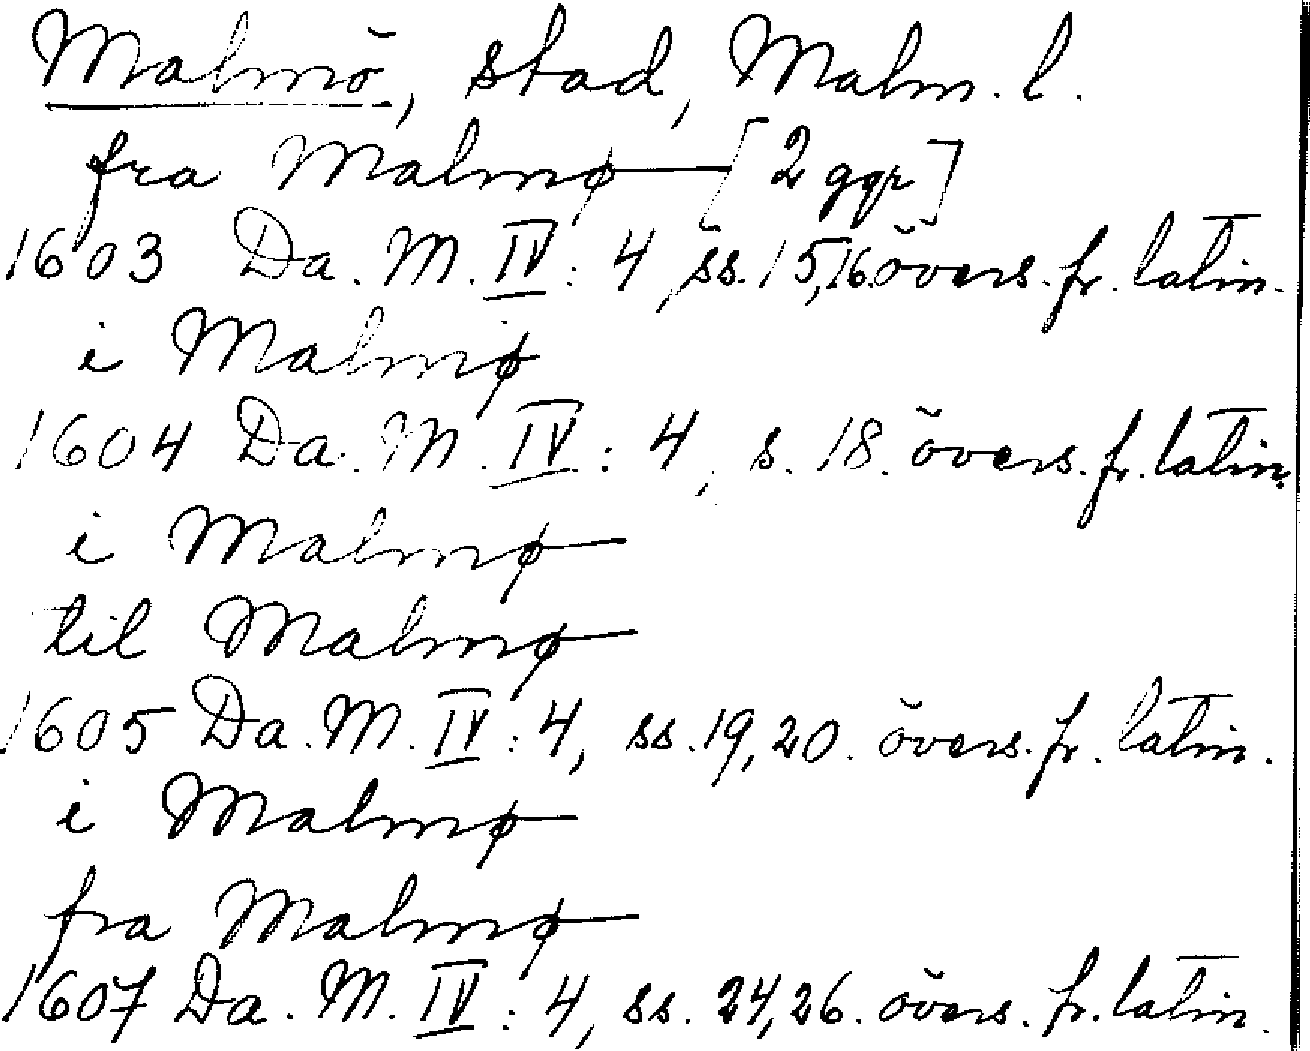 Malmö, stad, Malm. l.
fra Malmø [2 ggr]
1603 Da. M. IV: 4, ss. 15, 16. övers. fr. latin.
i Malmø
1604 Da. M. IV: 4, s. 18. övers. fr. latin.
i Malmø
til Malmø
1605 Da. M. IV: 4, ss. 19, 20. övers. fr. latin.
i Malmø
fra Malmø
1607 Da. M. IV: 4, ss. 24, 26. övers. fr. latin.